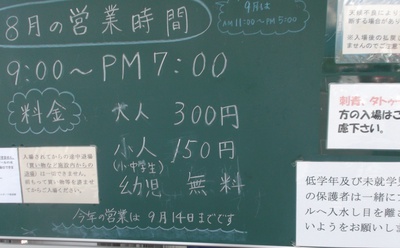 8月の営業時間
9月は
AM 11:00〜PM 5:00
9:00〜PM7:00
料金
大人 300円
小人 150円
(小中学生)
幼児 無料
今年の営業は 9月14日までです
入場されてからの途中退場
はできません。
刺青、タトゥ
方の入場はご
慮下さい。
低学年及び未就学児
の保護者は一緒にプ
ルへ入水し目を離さ
いようをお願いしま